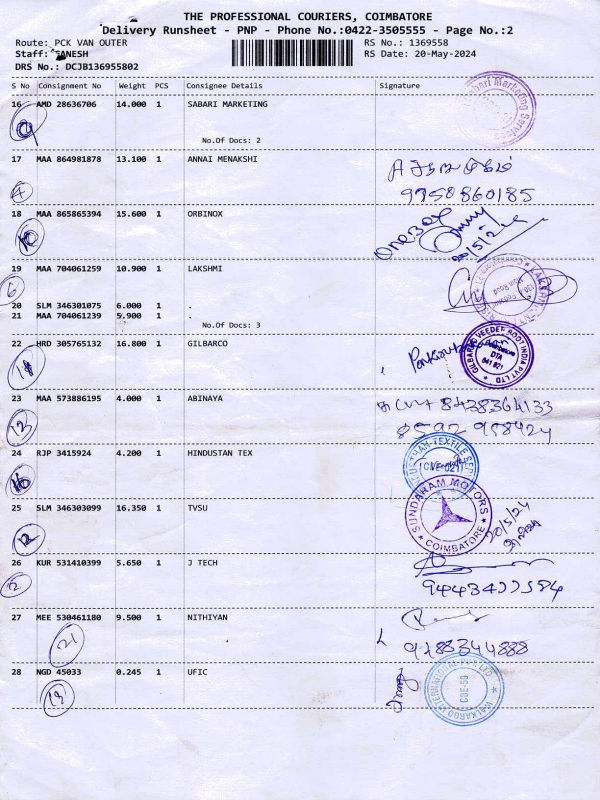 THE PROFESSIONAL COURIERS, COIMBATORE
Delivery Runsheet - PNP - Phone No.:0422-3505555 - Page No.:2
Route: PCK VAN OUTER RS No.: 1369558
Staff: GANESH RS Date: 20-May-2024
DRS No.: DCJB136955802
S No Consignment No Weight PCS Consignee Details Signature
16 AMD 28636706 14.000 1 SABARI MARKETING
No.Of Docs: 2
17 MAA 864981878 13.100 1 ANNAI MENAKSHI
4 9750860185
18 MAA 865865394 15.600 1 ORBINOX
10 20/5/24
19 MAA 704061259 10.900 1 LAKSHMI
20 SLM 346301075 6.000 1 .
21 MAA 704061239 5.900 1 .
No.Of Docs: 3
22 HRD 305765132 16.800 1 GILBARCO
GILBARCO VEEDER ROOT INDIA PVT LTD
DTA
641 021
23 MAA 573886195 4.000 1 ABINAYA
8438364133
13 8592 958424
24 RJP 3415924 4.200 1 HINDUSTAN TEX
25 SLM 346303099 16.350 1 TVSU
SUNDARAM MOTORS
COIMBATORE
12 20/5/24
26 KUR 531410399 5.650 1 J TECH
27 MEE 530461180 9.500 1 NITHIYAN
21 9788344888
28 NGD 45033 0.245 1 UFIC
WALKAROO INTERNATIONAL PVT LTD
CBE-50
19